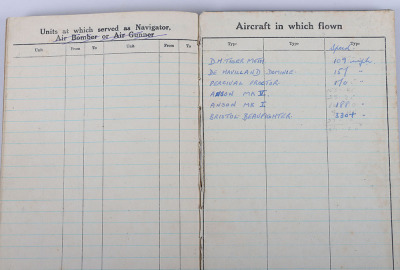 Units at which served as Navigator,
Air Bomber or Air Gunner
Unit From To Unit From To
Aircraft in which flown
Type Type Type
Speed
D.H. TIGER MOTH 109 mph
DE HAVILLAND DOMINIE 157 "
PERCIVAL PROCTOR "
ANSON MK
ANSON MK I 188 "
BRISTON BEAUFIGHTER "